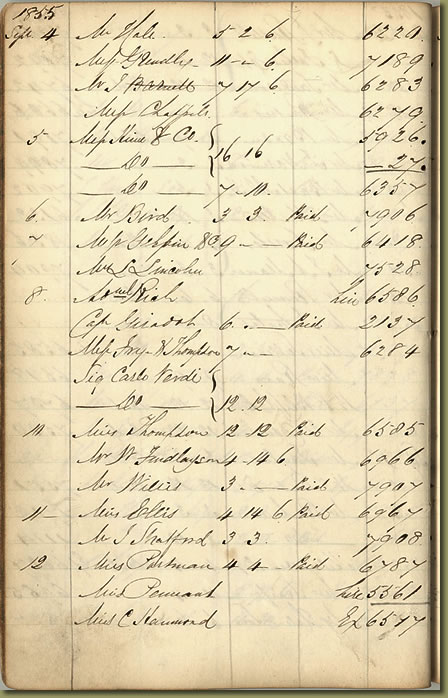 1855
Sept. 4 Mr Hale. 5 2 6. 6220.
Mess Grindley 11 - 6. 7189
Mr J Barnett 7 17 6 6283
Mess Chappels 6279.
5 Mess Hime & Co. 5926.
— Do — 16 16 — 27.
— Do — 7 - 10. 6357
6. Mr Bird. 3 3. Paid 7906
7 Mess 9 — Paid 6418.
Mr S Lincoln 7528.
8. Rich 6586
Cap Girardot 6. — Paid 2137
Mess Ivry & Thompson 7 - — 6284
Sig Carlo Verdi
— Do — 12.12
10 Miss Thompson 12 12 Paid 6585
Mr W Findlayson 4 14 6 6966
Mr Willis 3 — — Paid 7907
11 Miss Ellis 4 14 6 Paid 6967
Mr J Stratford 3 3. 7908
12 Miss Portman 4 4 — Paid 6787
Miss Pennant hire 5561
Miss C Hammond Ex 6577